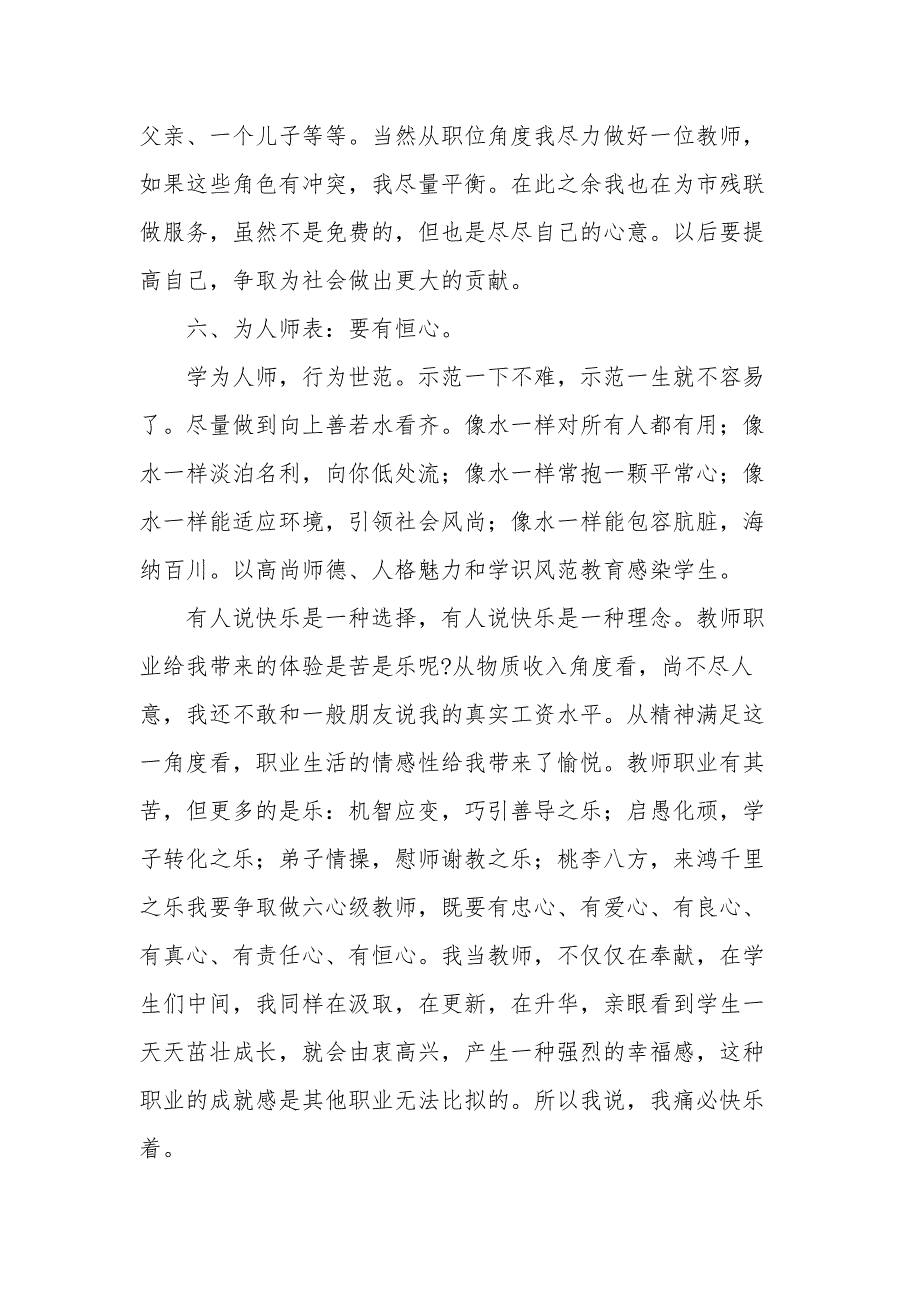 父亲、一个儿子等等。当然从职位角度我尽力做好一位教师，
如果这些角色有冲突，我尽量平衡。在此之余我也在为市残联
做服务，虽然不是免费的，但也是尽尽自己的心意。以后要提
高自己，争取为社会做出更大的贡献。
六、为人师表：要有恒心。
学为人师，行为世范。示范一下不难，示范一生就不容易
了。尽量做到向上善若水看齐。像水一样对所有人都有用；像
水一样淡泊名利，向你低处流；像水一样常抱一颗平常心；像
水一样能适应环境，引领社会风尚；像水一样能包容肮脏，海
纳百川。以高尚师德、人格魅力和学识风范教育感染学生。
有人说快乐是一种选择，有人说快乐是一种理念。教师职
业给我带来的体验是苦是乐呢?从物质收入角度看，尚不尽人
意，我还不敢和一般朋友说我的真实工资水平。从精神满足这
一角度看，职业生活的情感性给我带来了愉悦。教师职业有其
苦，但更多的是乐：机智应变，巧引善导之乐；启愚化顽，学
子转化之乐；弟子情操，慰师谢教之乐；桃李八方，来鸿千里
之乐我要争取做六心级教师，既要有忠心、有爱心、有良心、
有真心、有责任心、有恒心。我当教师，不仅仅在奉献，在学
生们中间，我同样在汲取，在更新，在升华，亲眼看到学生一
天天茁壮成长，就会由衷高兴，产生一种强烈的幸福感，这种
职业的成就感是其他职业无法比拟的。所以我说，我痛必快乐
着。